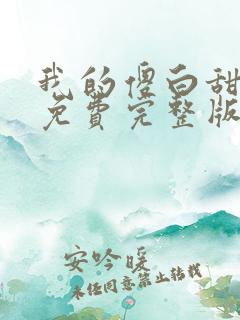 我的傻白甜
免费完整版
安吟暖
未经同意禁止转载